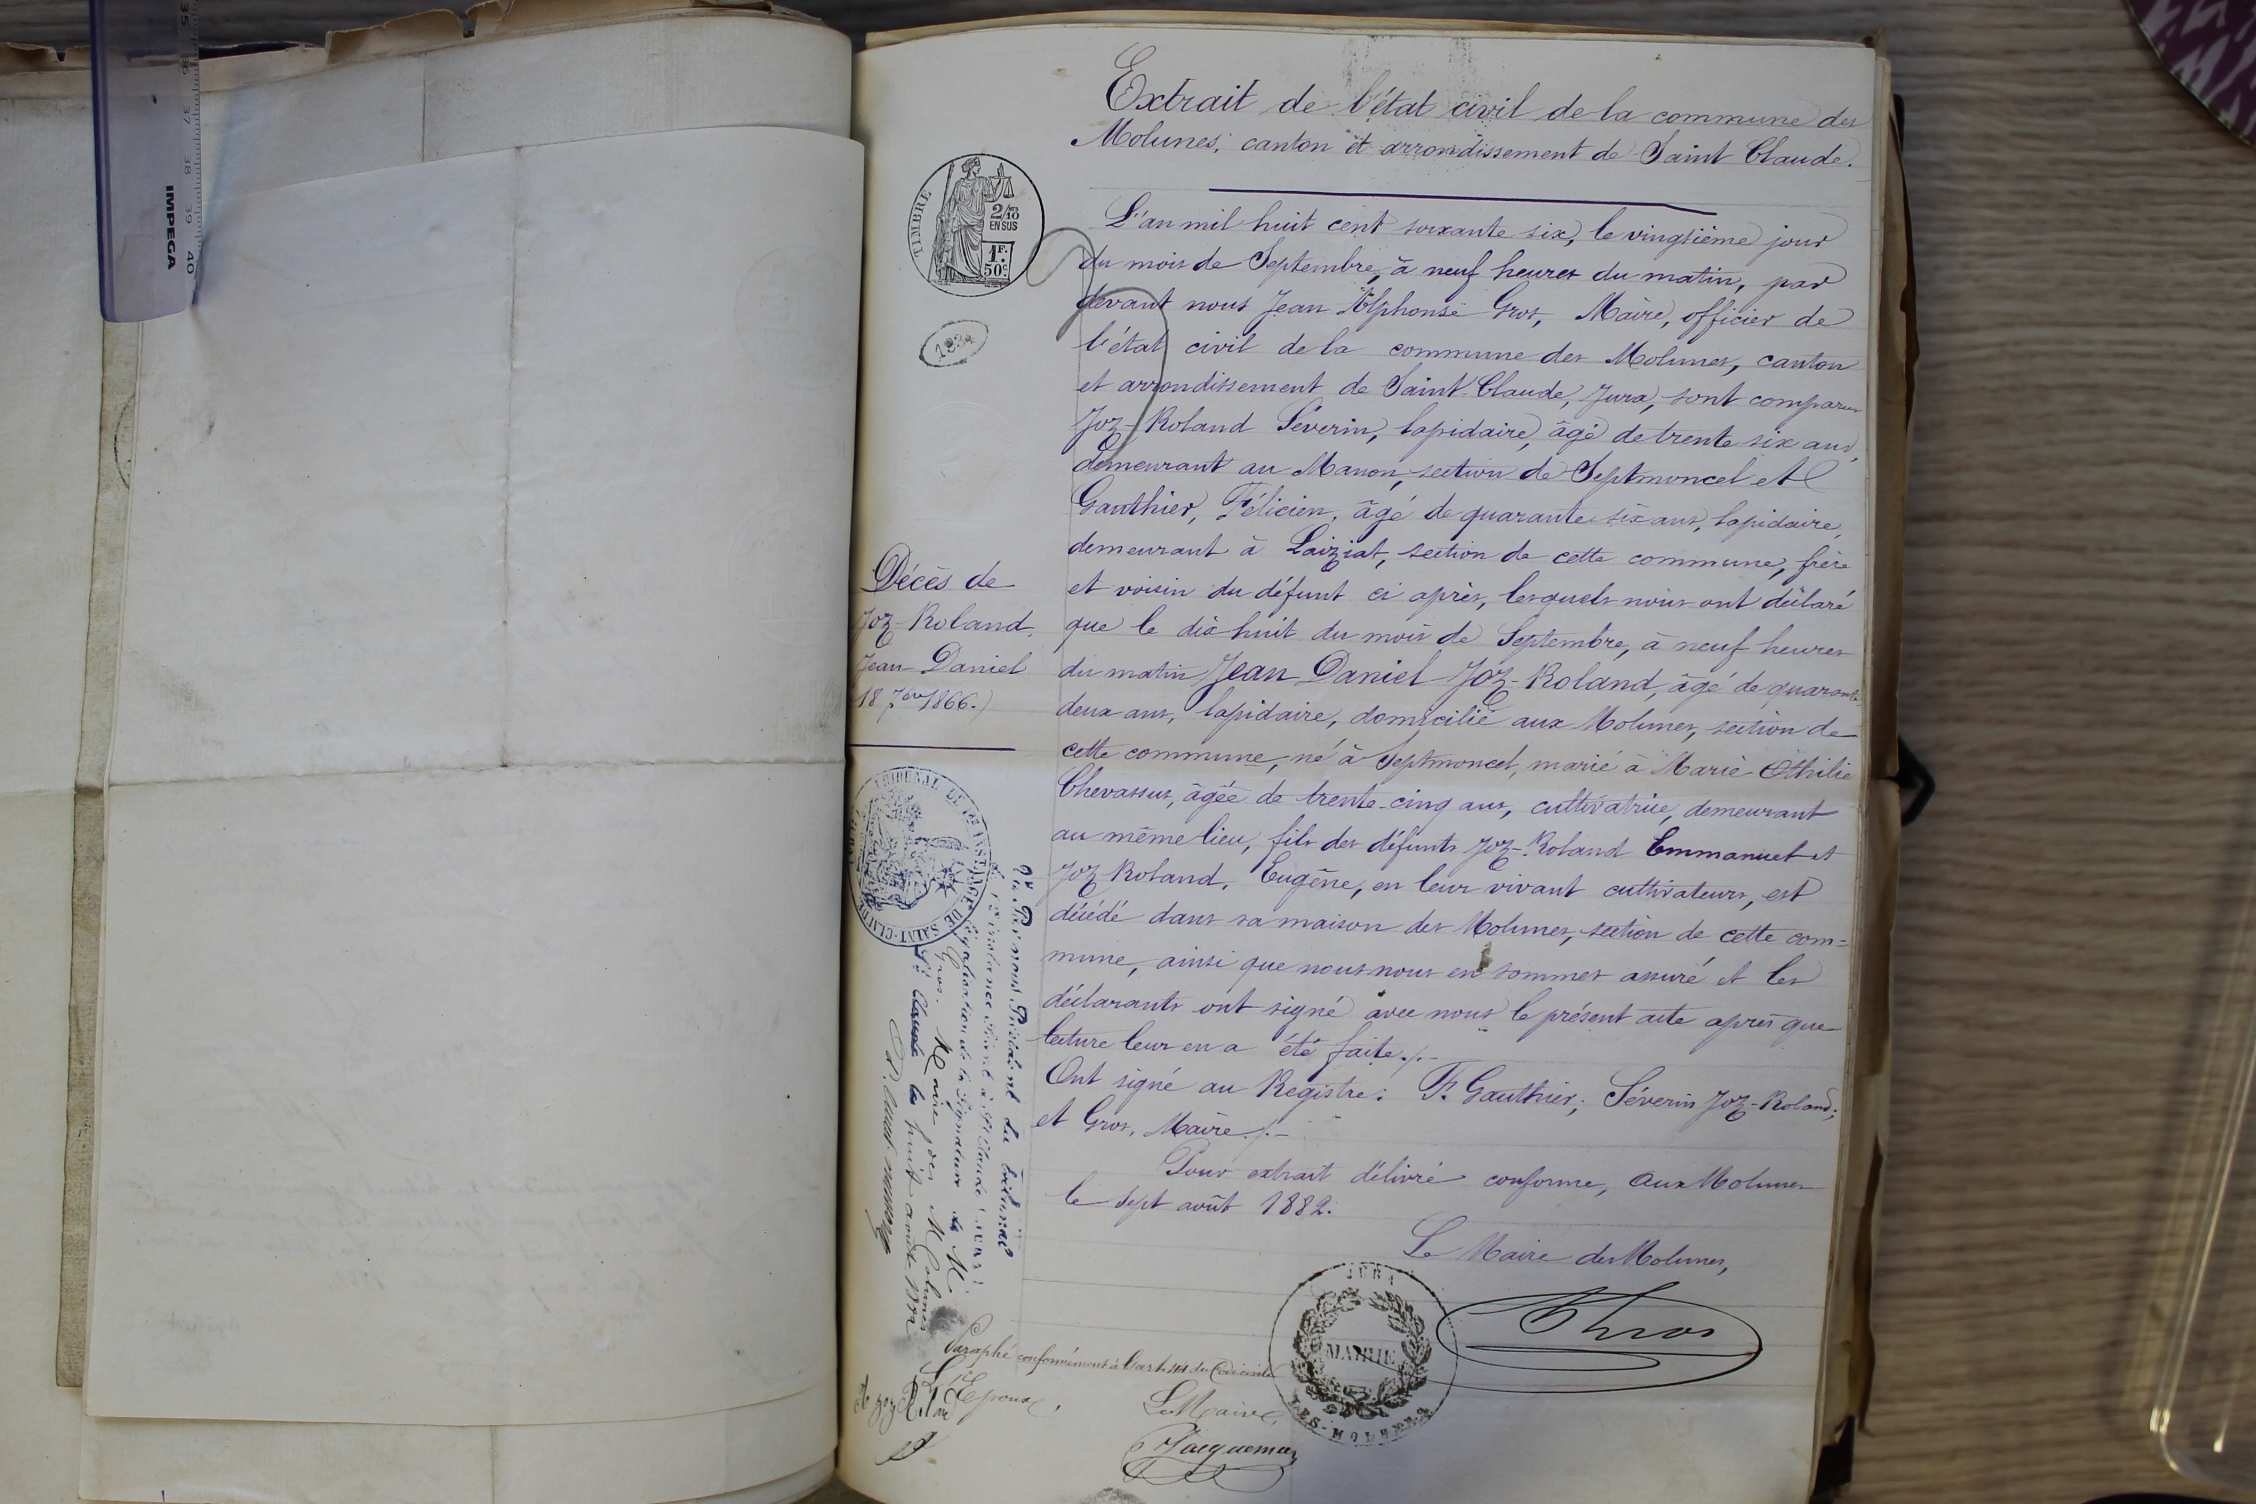 Extrait de l'état civil de la commune des
Molunes, canton et arrondissement de Saint Claude.
TIMBRE
2/10
EN SUS
1F.
50c
L'an mil huit cent soixante six, le vingtième jour
du mois de Septembre, à neuf heures du matin, par
devant nous Jean Alphonse Gros, Maire, officier de
l'état civil de la commune des Molunes, canton
et arrondissement de Saint-Claude, Jura, sont comparus
Joz-Roland Séverin, lapidaire, âgé de trente six ans,
demeurant au Manon, section de Septmoncel et
Gauthier, Félicien, âgé de quarante six ans, lapidaire,
demeurant à Laiziat, section de cette commune, frère
et voisin du défunt ci après, lesquels nous ont déclaré
que le dix huit du mois de Septembre, à neuf heures
du matin Jean Daniel Joz-Roland, âgé de quarante
deux ans, lapidaire, domicilié aux Molunes, section de
cette commune, né à Septmoncel, marié à Marie Othilie
Chevassus, âgée de trente-cinq ans, cultivatrice, demeurant
au même lieu, fils des défunts Joz-Roland Emmanuel et
Joz-Roland, Eugène, en leur vivant cultivateurs, est
décédé dans sa maison des Molunes, section de cette com=
mune, ainsi que nous nous en sommes assuré et les
déclarants ont signé avec nous le présent acte après que
lecture leur en a été faite./.
Ont signé au Registre: F. Gauthier; Séverin Joz-Roland;
et Gros, Maire./.
Pour extrait délivré conforme, aux Molunes
le sept août 1882.
Le Maire des Molunes,
Gros
JURA
MAIRIE
LES-MOLUNES
Décès de
Joz-Roland,
Jean-Daniel
18 7bre 1866.
TRIBUNAL DE 1ère INSTANCE DE SAINT-CLAUDE
Vu Par nous Président du tribunal
de 1ère instance séant à St Claude (Jura)
législation de la signature de M.
Gros Maire des Molunes
St Claude le huit août 1882
Paraphé conformément à l'art. du Code civil
L'Epoux,
Le Maire,
Jacquemin
IMPEGA
35
36
37
38
39
40